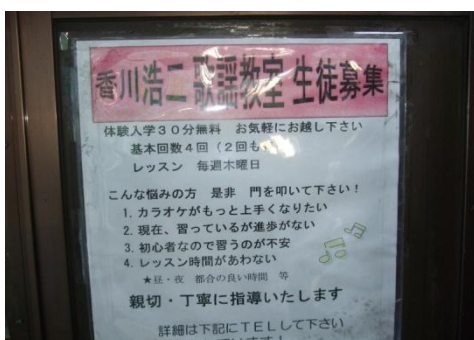 香川浩二 歌謡教室 生徒募集
体験入学30分無料 お気軽にお越し下さい
基本回数4回（2回も
レッスン 毎週木曜日
こんな悩みの方 是非 門を叩いて下さい！
1. カラオケがもっと上手くなりたい
2. 現在、習っているが進歩がない
3. 初心者なので習うのが不安
4. レッスン時間があわない
★昼・夜 都合の良い時間 等
親切・丁寧に指導いたします
詳細は下記にTELして下さい